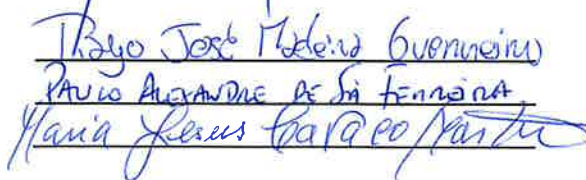 Thiago José Madeira Guerreiro
PAULO ALEXANDRE DE SÁ FERREIRA
Maria Jesus